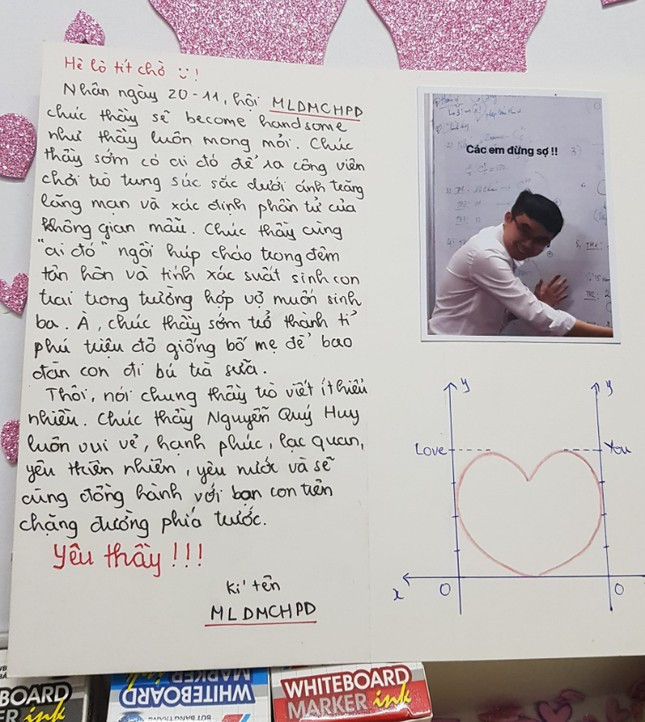 Hê lô tít chờ !
Nhân ngày 20-11, hội MLDMCHPD
chúc thầy sẽ become handsome
như thầy luôn mong mỏi. Chúc
thầy sớm có ai đó để ra công viên
chơi trò tung súc sắc dưới ánh trăng
lãng mạn và xác định phần tử của
không gian mẫu. Chúc thầy cùng
"ai đó" ngồi húp cháo trong đêm
tân hôn và tính xác suất sinh con
trai trong trường hợp vợ muốn sinh
ba. À, chúc thầy sớm trở thành tỉ
phú triệu đô giống bố mẹ để bao
đàn con đi bú trà sữa.
Thôi, nói chung thầy trò viết ít hiểu
nhiều. Chúc thầy Nguyễn Quý Huy
luôn vui vẻ, hạnh phúc, lạc quan,
yêu thiên nhiên, yêu nước và sẽ
cùng đồng hành với bạn con trên
chặng đường phía trước.
Yêu thầy !!!
Kí tên
MLDMCHPD
Các em đừng sợ !!
y
y
Love
You
x
O
O
BOARD
ER ink
WHITEBOARD
MARKER
WHITEBOARD
MARKER ink